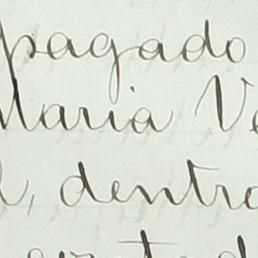 pagado
Maria Ve
l, dentro